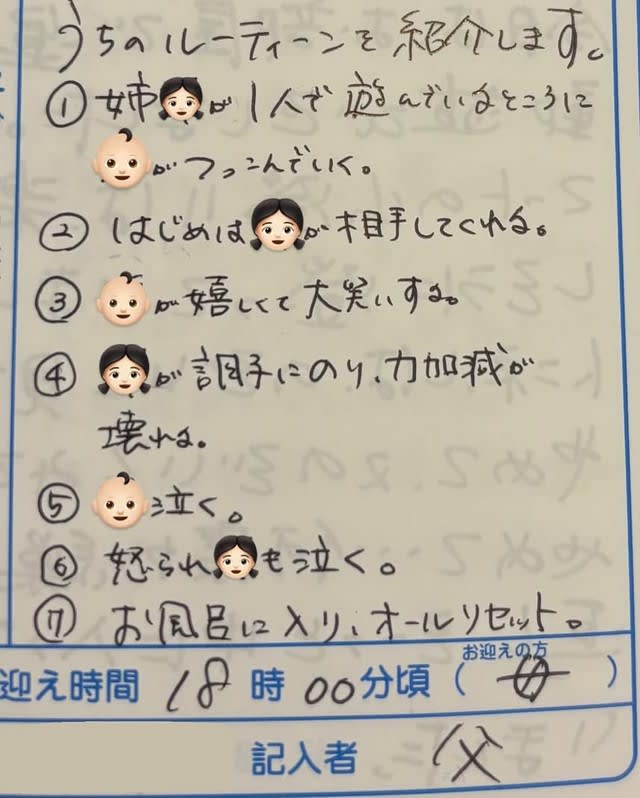 うちのルーティーンを紹介します。
① 姉👧🏻が1人で遊んでいるところに
👶🏻がつっこんでいく。
② はじめは👧🏻が相手してくれる。
③ 👶🏻が嬉しくて大笑いする。
④ 👧🏻が調子にのり、力加減が
壊れる。
⑤ 👶🏻泣く。
⑥ 怒られ👧🏻も泣く。
⑦ お風呂に入り、オールリセット。
お迎えの方
迎え時間 18時00分頃( )
記入者 父